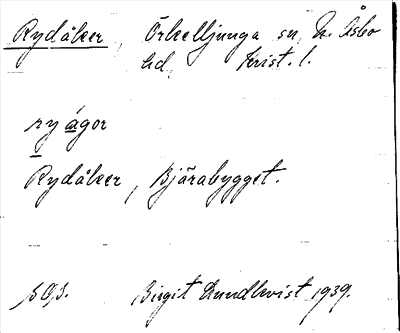 Rydåker, Örkelljunga sn, N. Åsbo
hd, Krist. l.
ryågor
Rydåker, Bjärabygget.
s 93.   Birgit Lundkvist 1939.